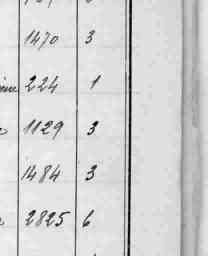 1470 3
224 1
1129 3
1484 3
2825 6